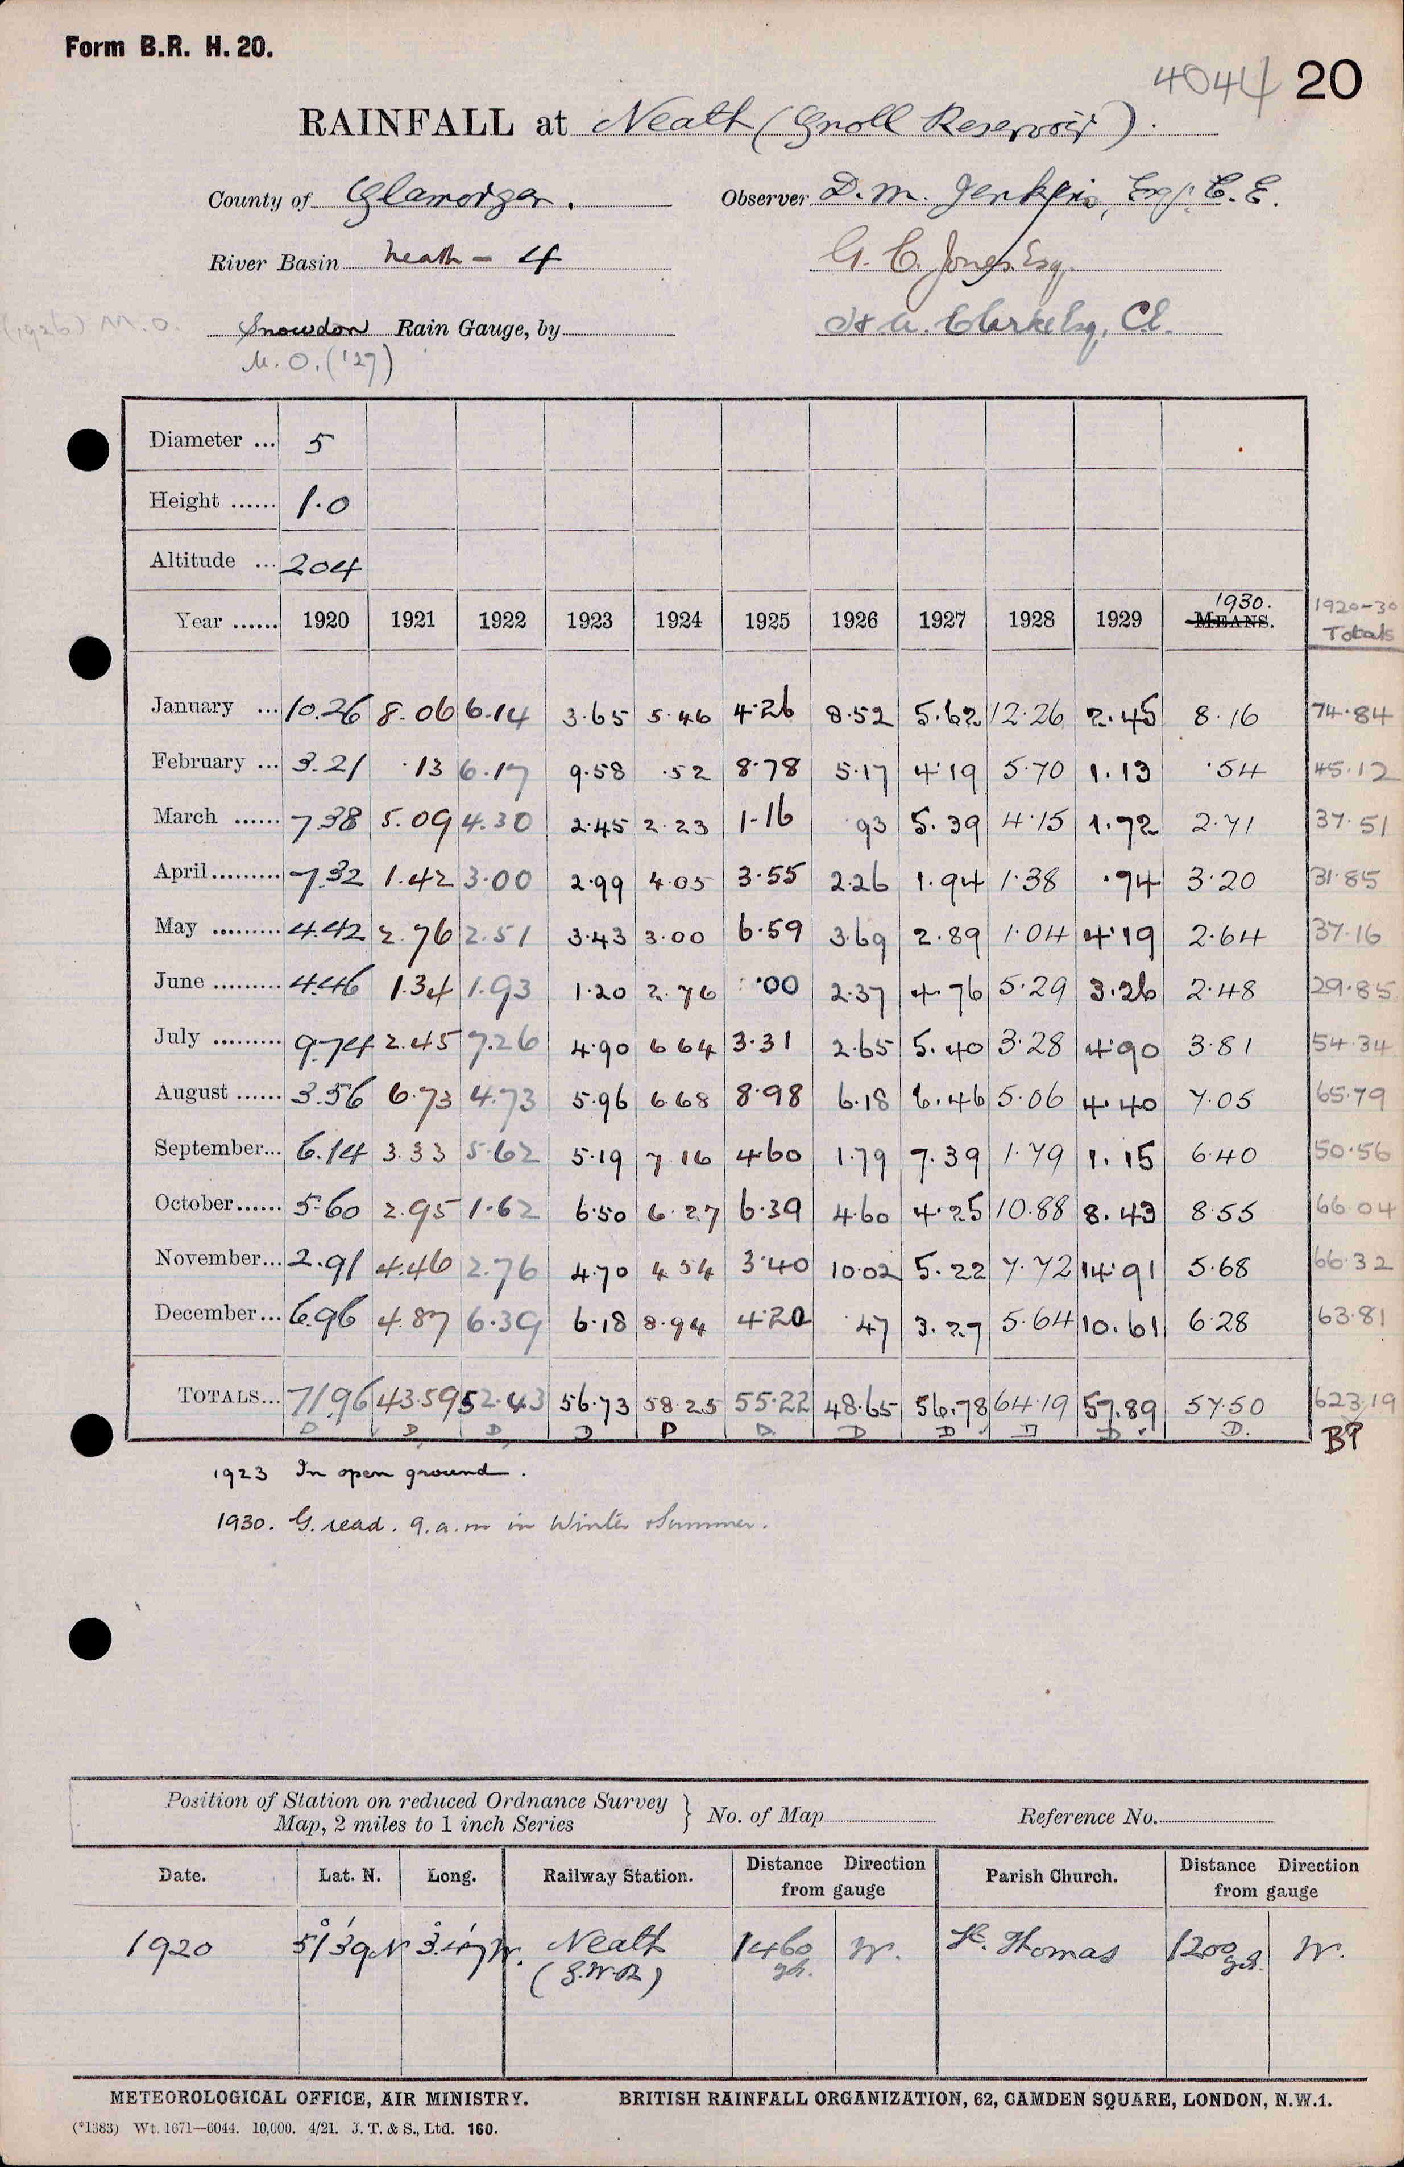 Form B.R. H. 20.
4044 20
RAINFALL at Neath (Gnoll Reservoir).
County of Glamorgan. Observer D. M. Jenkins, Esq. C. E.
River Basin Neath - 4 G. C. Jones Esq.
(1926) M.O. Snowdon Rain Gauge, by H. A. Clarke Esq, CE.
M.O. ('27)
Diameter ... 5
Height ...... 1.0
Altitude ... 204
Year ...... 1920 1921 1922 1923 1924 1925 1926 1927 1928 1929 1930. MEANS. 1920-30 Totals
January ... 10.26 8.06 6.14 3.65 5.46 4.26 8.52 5.62 12.26 2.45 8.16 74.84
February ... 3.21 .13 6.17 9.58 .52 8.78 5.17 4.19 5.70 1.13 .54 45.12
March ...... 7.38 5.09 4.30 2.45 2.23 1.16 .93 5.39 4.15 1.72 2.71 37.51
April ......... 7.32 1.42 3.00 2.99 4.05 3.55 2.26 1.94 1.38 .74 3.20 31.85
May ......... 4.42 2.76 2.51 3.43 3.00 6.59 3.69 2.89 1.04 4.19 2.64 37.16
June ......... 4.46 1.34 1.93 1.20 2.76 .00 2.37 4.76 5.29 3.26 2.48 29.85
July ......... 9.74 2.45 7.26 4.90 6.64 3.31 2.65 5.40 3.28 4.90 3.81 54.34
August ...... 3.56 6.73 4.73 5.96 6.68 8.98 6.18 6.46 5.06 4.40 7.05 65.79
September ... 6.14 3.33 5.62 5.19 7.16 4.60 1.79 7.39 1.79 1.15 6.40 50.56
October ...... 5.60 2.95 1.62 6.50 6.27 6.39 4.60 4.25 10.88 8.43 8.55 66.04
November ... 2.91 4.46 2.76 4.70 4.54 3.40 10.02 5.22 7.72 14.91 5.68 66.32
December ... 6.96 4.87 6.39 6.18 8.94 4.20 .47 3.27 5.64 10.61 6.28 63.81
TOTALS ... 71.96 43.59 52.43 56.73 58.25 55.22 48.65 56.78 64.19 57.89 57.50 623.19
D D D D D D D D D D D.
1923 In open ground.
1930. G. read. 9.a.m in Winter & Summer.
Position of Station on reduced Ordnance Survey Map, 2 miles to 1 inch Series } No. of Map Reference No.
Date. Lat. N. Long. Railway Station. Distance Direction from gauge Parish Church. Distance Direction from gauge
1920 51° 39' N 3° 47' W. Neath (G.W.R) 1460 yds. W. St. Thomas 1200 yds. W.
METEOROLOGICAL OFFICE, AIR MINISTRY. BRITISH RAINFALL ORGANIZATION, 62, CAMDEN SQUARE, LONDON, N.W.1.
(*1383) Wt. 1671—6044. 10,000. 4/21. J. T. & S., Ltd. 160.